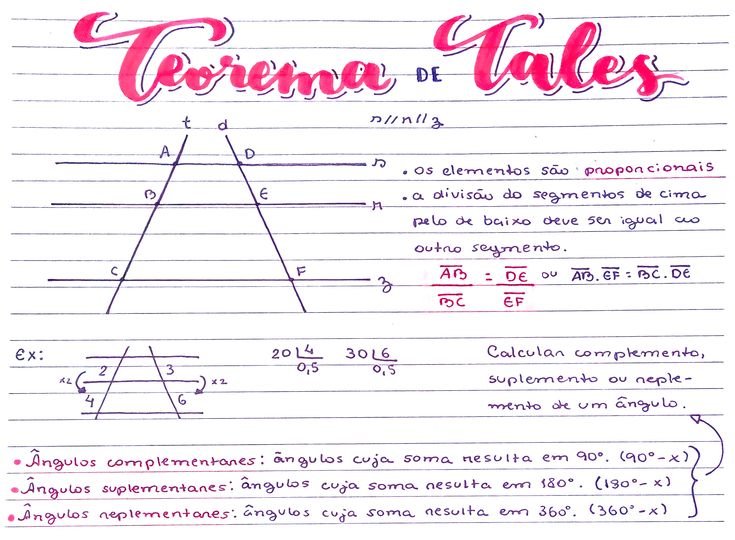 Teorema DE Tales
t d r//r//z
A D r
B E r
C F z
• os elementos são proporcionais
• a divisão do segmentos de cima
pelo de baixo deve ser igual ao
outro segmento.
AB/BC = DE/EF ou AB.EF = BC.DE
Ex:
2 3
x2 x2
4 6
20 4 30 6
0,5 0,5
Calcular complemento,
suplemento ou reple-
mento de um ângulo.
• Ângulos complementares: ângulos cuja soma resulta em 90°. (90°-x)
• Ângulos suplementares: ângulos cuja soma resulta em 180°. (180°-x)
• Ângulos replementares: ângulos cuja soma resulta em 360°. (360°-x)